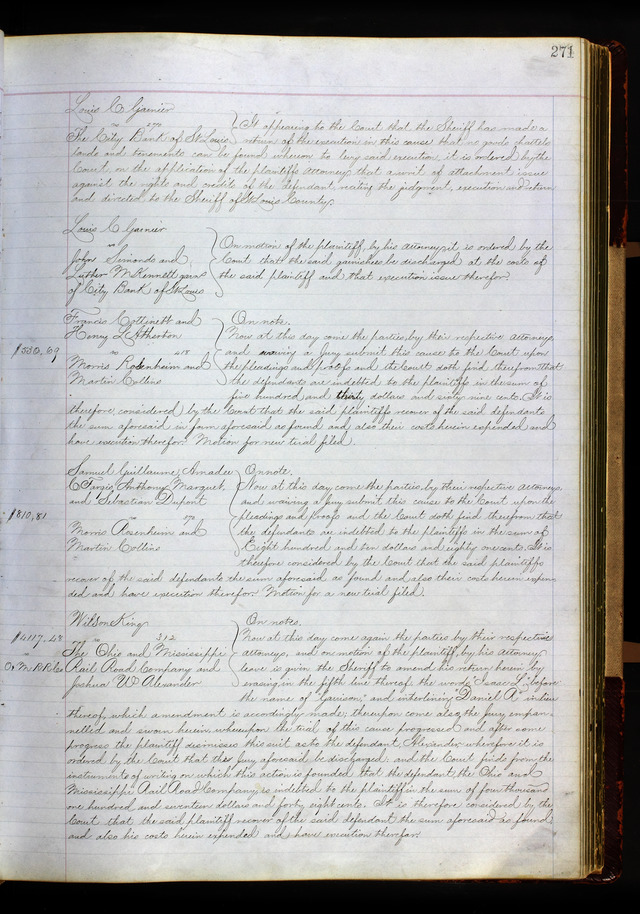 271
Louis C Garnier
vs 270
The City Bank of St Louis
It appearing to the Court that the Sheriff has made a
return of the execution in this cause that no goods chattels
lands and tenements can be found whereon to levy said execution, it is ordered by the
Court on the application of the plaintiffs attorney that a writ of attachment issue
against the rights and credits of the defendant reciting the judgment, execution and return
and directed to the Sheriff of St Louis County.
Louis C Garnier
vs
John Simonds and
Luther M Kennett garns
of City Bank of St Louis
On motion of the plaintiff, by his attorney, it is ordered by the
Court that the said garnishees be discharged at the costs of
the said plaintiff and that execution issue therefor.
$530,69
Francis Cottinett and
Henry
vs 418
Morris Rosenheim and
Martin Collins
On note.
Now at this day come the parties, by their respective attorneys
and waving a Jury submit this cause to the Court upon
the pleadings and proofs and the Court doth find therefrom that
the defendants are indebted to the plaintiffs in the sum of
five hundred and thirty dollars and sixty nine cents. It is
therefore considered by the Court that the said plaintiffs recover of the said defendants
the sum aforesaid in form aforesaid as found and also their costs herein expended and
have execution therefor. Motion for new trial filed.
$810,81
Samuel Guillaume, Amadee
C Anthony Marquet,
and Sebastian Dupont
vs 570
Morris Rosenheim and
Martin Collins
On note.
Now at this day come the parties, by their respective attorneys
and waiving a Jury submit this cause to the Court upon the
pleadings and proofs and the Court doth find therefrom that
the defendants are indebted to the plaintiffs in the sum of
Eight hundred and ten dollars and eighty one cents. It is
therefore considered by the Court that the said plaintiffs
recover of the said defendants the sum aforesaid as found and also their costs herein expen-
ded and have execution therefor. Motion for a new trial filed.
$4117,48
vs
O & M RR Co
Wilson King
vs 312
The Ohio and Mississippi
Rail Road Company and
Joshua W Alexander
On notes.
Now at this day come again the parties by their respective
attorneys, and on motion of the plaintiff, by his attorney,
leave is given the Sheriff to amend his return herein by
erasing in the fifth line thereof the word "Isaac L" before
the name of "Garrison," and interlining "Daniel R" in lieu
thereof, which amendment is accordingly made; thereupon come also the Jury empan-
nelled and sworn herein whereupon the trial of this cause progressed and after some
progress the plaintiff dismisses this suit as to the defendant Alexander wherefore it is
ordered by the Court that the Jury aforesaid be discharged: and the Court finds from the
instruments of writing on which this action is founded that the defendant the Ohio and
Mississippi Rail Road Company, is indebted to the plaintiff in the sum of four thousand
one hundred and seventeen dollars and forty eight cents. It is therefore considered by the
Court that the said plaintiff recover of the said defendant the sum aforesaid as found
and also his costs herein expended and have execution therefor.